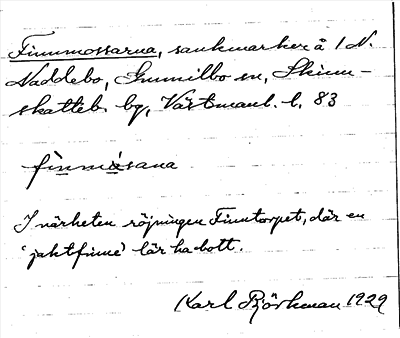 Finnmossarna, sankmarker å 1 N.
Naddebo, Gunnilbo sn, Skinn-
skatteb. bg, Västmanl. l. 83
finmåsana
I närheten röjningen Finntorpet, där en
'jaktfinne' lär ha bott.
Karl Björkman 1929